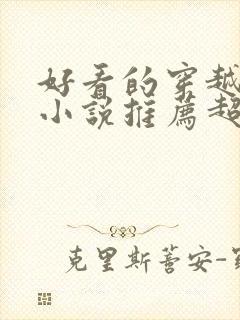 好看的穿越
小说推荐超
克里斯蒂安-